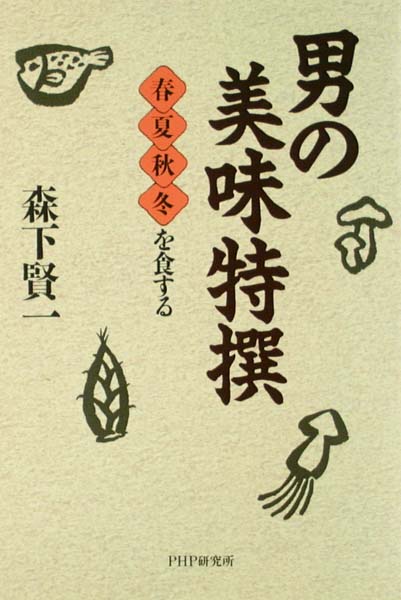 男の
美味特撰
春夏秋冬を食する
森下賢一
PHP研究所